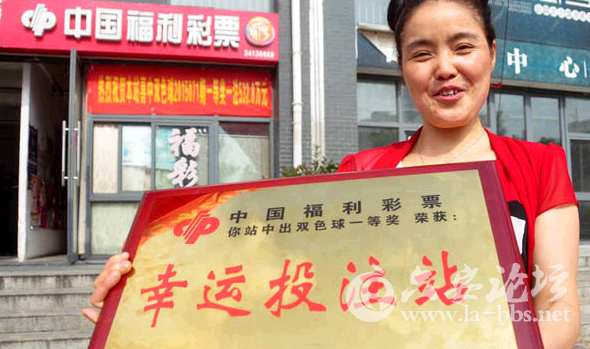 中国福利彩票
34130808
热烈祝贺本站喜中双色球2015071期一等奖一注532.8万元
福彩
中心
中国福利彩票
你站中出双色球一等奖 荣获：
幸运投注站
六安论坛
www.la-bbs.net